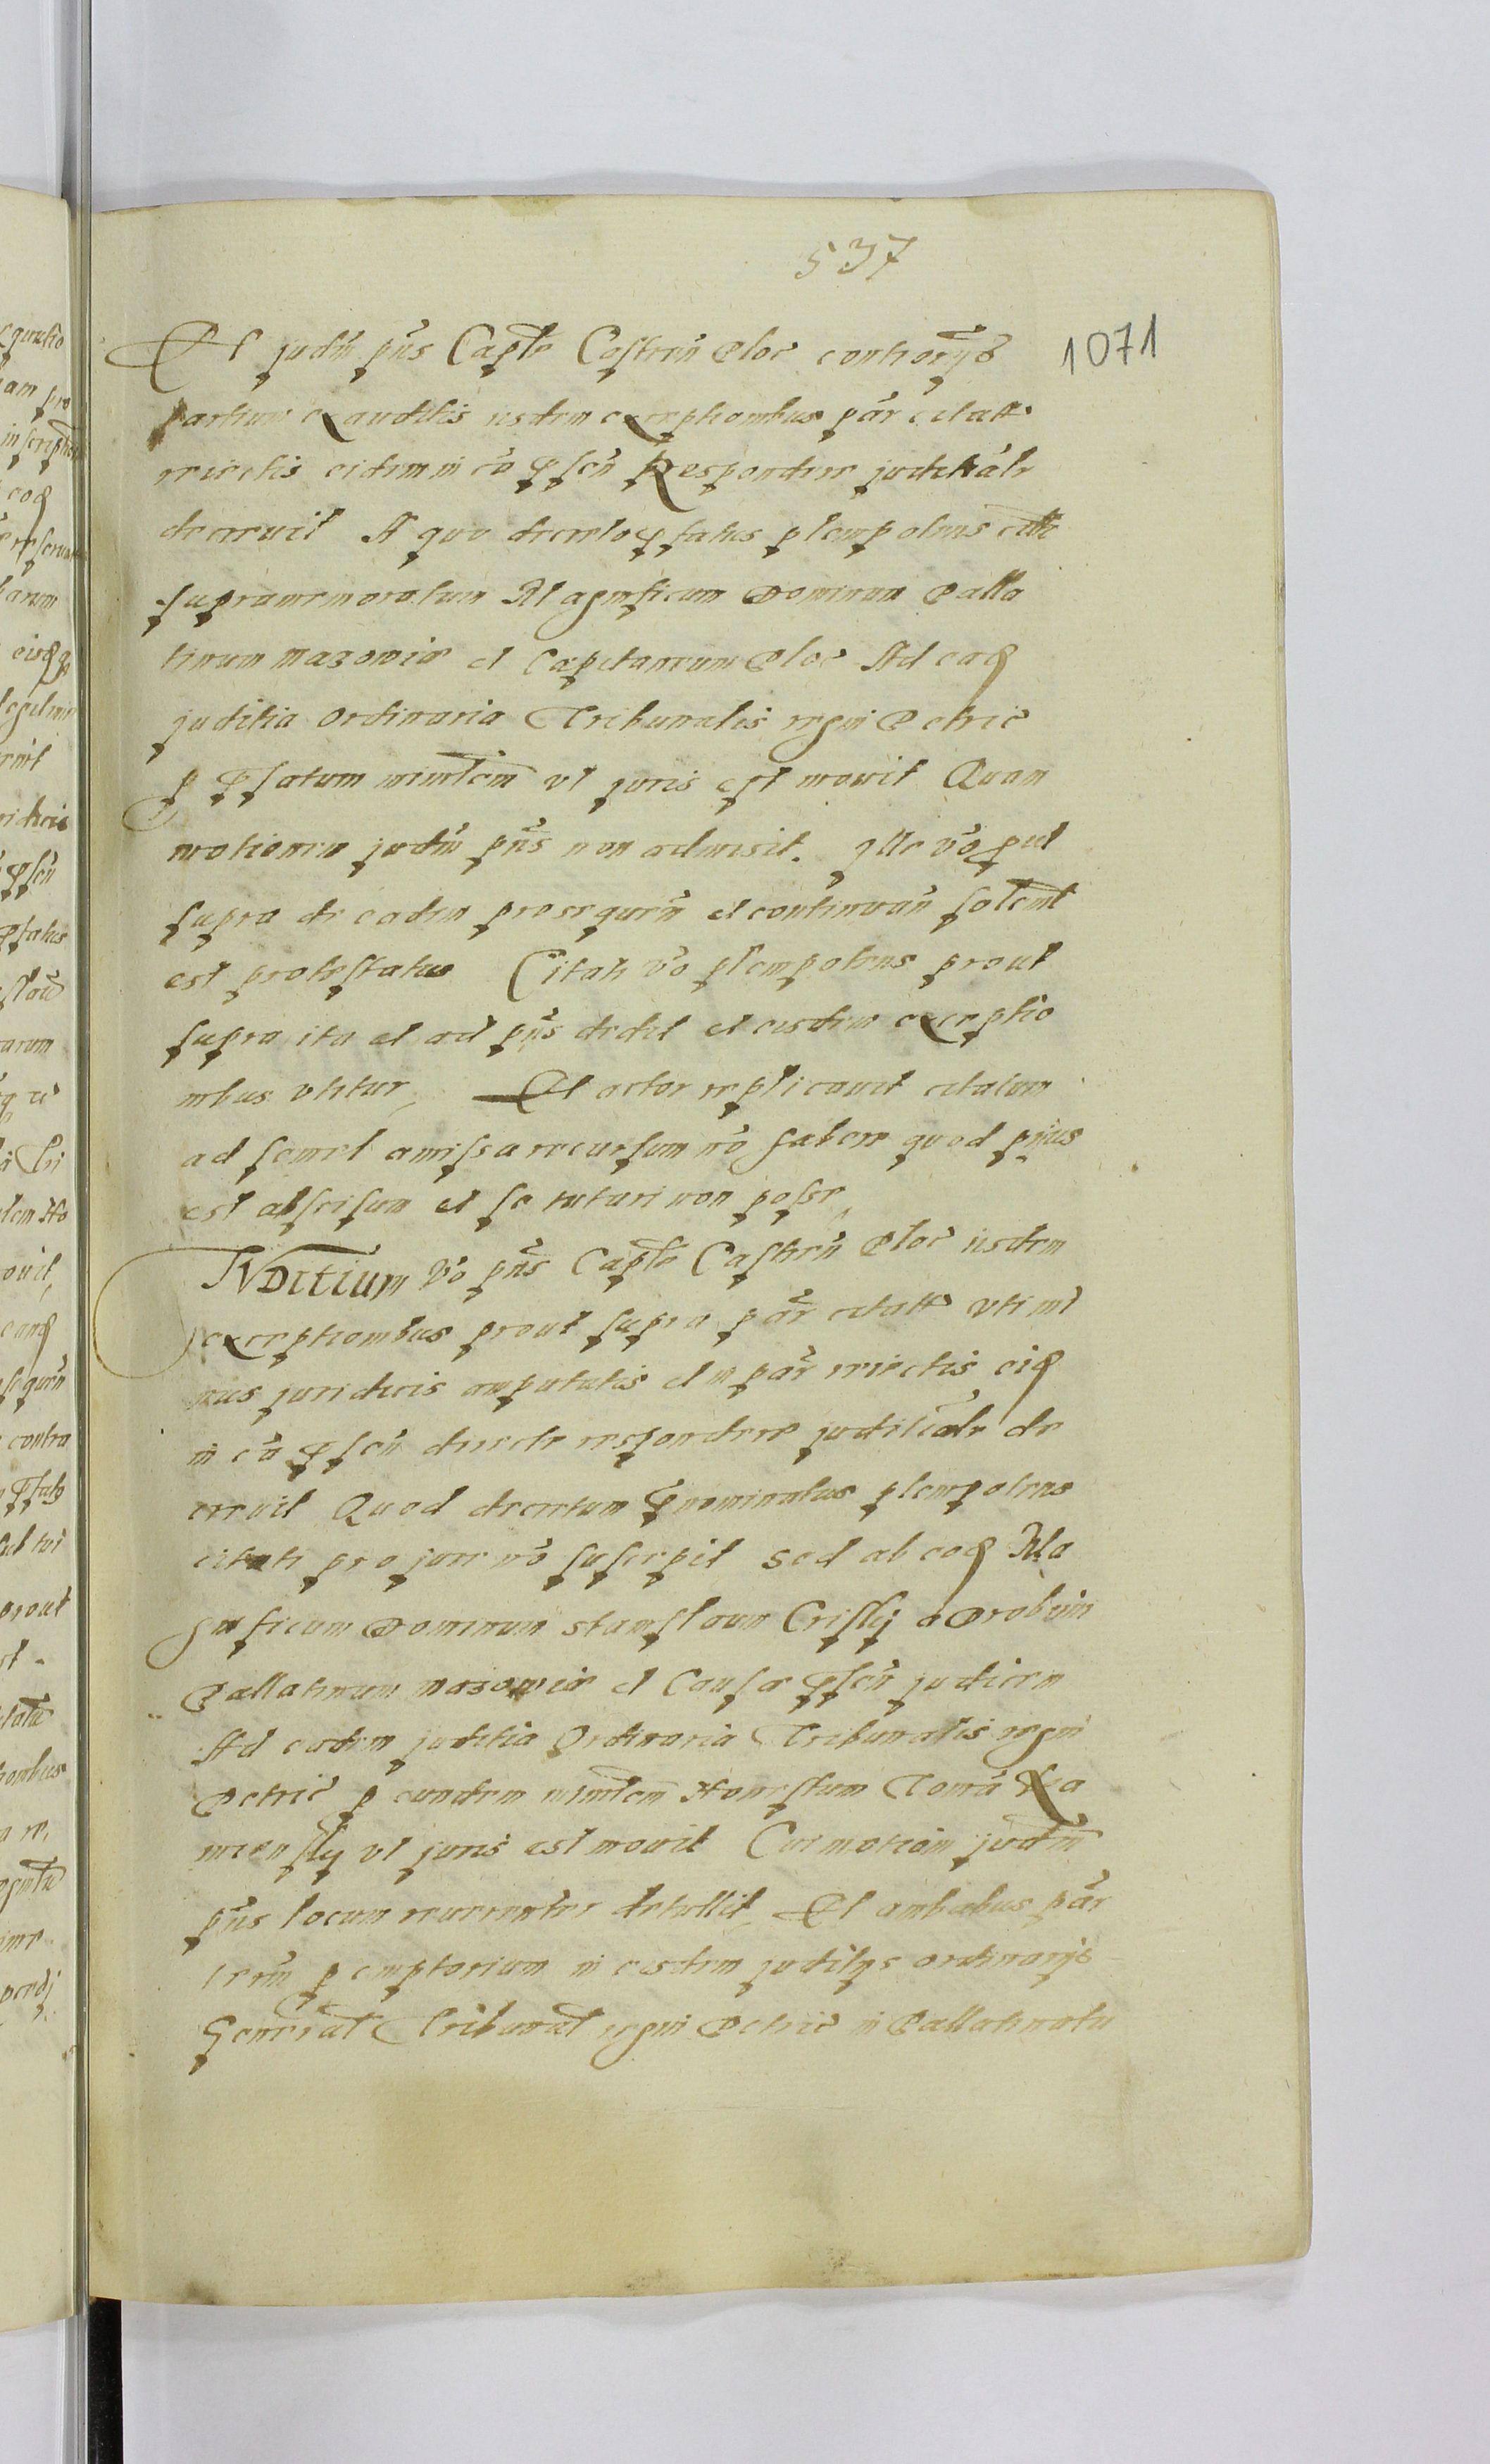 537
1071
Et judm pñs Caplt̃e Castreñ Ploc̃ controrijs
partium exauditis iisdem exceptionibus par̃ citatt
reiectis eidem in cã p̃scñ Respondere juditiãlr
decrevit A quo decreto p̃fatus plenipotens citti
supramemoratum Magnificum Dominum Palla
tinum mazoviæ et Capitaneum Ploc̃ Ad eaq
juditia ordinaria Tribunalis regni Petric̃
p p̃fatum minlem̃ vt juris est movit Quam
motionem judm pñs non admisit. Ille võ put
supra de eadem prosequeñ et continuañ solent̃
est protestatus Citati võ plenipotens prout
supra ita et ad pñs dedit et eisdem exceptio
nibus vtitur, Et actor replicavit citatum
ad semel amissa recursum nõ habere quod prius
est abscisum et se tutari non posse,
IVDITIUM võ pñs Caplt̃e Castreñ Ploc̃ iisdem
exceptionibus prout supra par̃ citatt vti mi
nus juridicis amputatis et in par̃ reiectis eiq
in cã p̃scñ directe respondere juditialr̃ de
crevit Quod decretum p̃nominatus plenipotens
citati pro jure nõ suscepit sed ab eoq Ma
gnificum Dominum stanislaum Crisky a Drobnin
Pallatinum mazoviæ et Causæ p̃scñ judicem
Ad eadem juditia Ordinaria Tribunalis regni
Petric̃ p eundem minlem̃ Honestum Tomã Ka
miensky vt juris est movit Cui motioni judm̃
pñs locum reverenter detullit, Et ambabus par̃
term̃ pemptorium in eisdem juditijs ordinarijs
General̃ Tribunal̃ regni Petric̃ in Pallatinatu